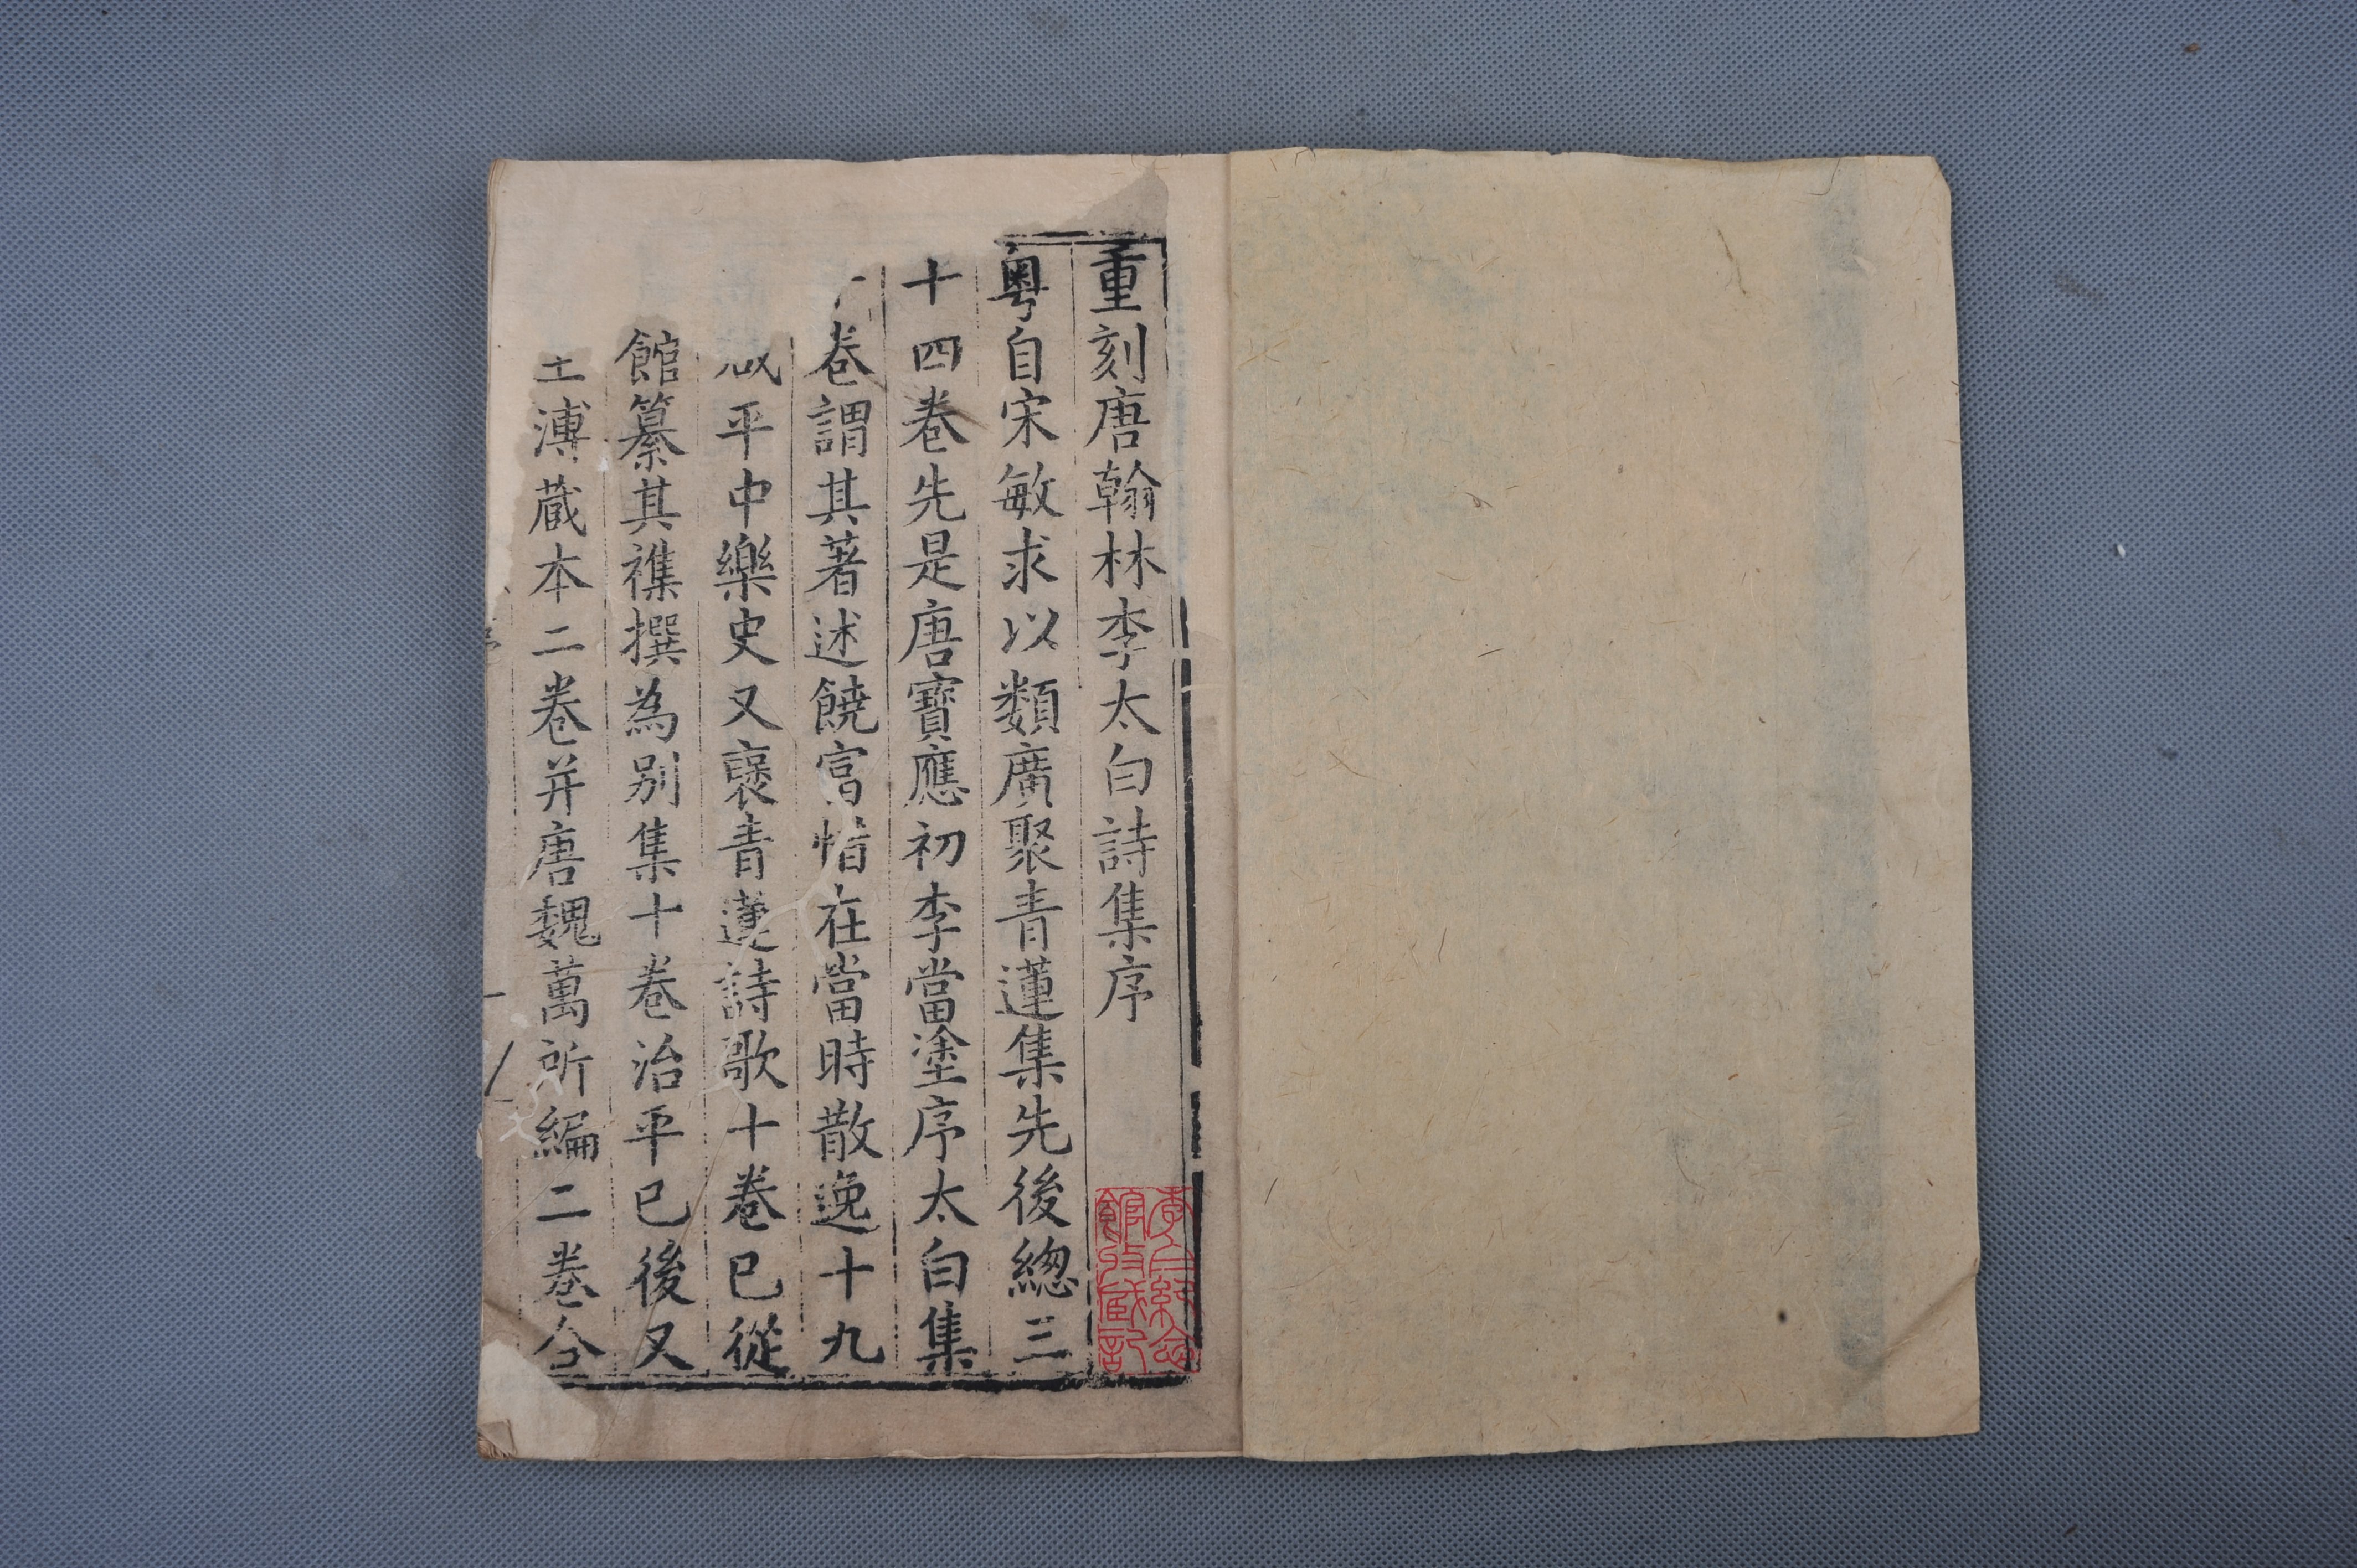 重刻唐翰林李太白詩集序
粵自宋敏求以類廣聚青蓮集先後總三
十四卷先是唐寶應初李當塗序太白集
卷謂其著述饒富惜在當時散逸十九
咸平中樂史又裒青蓮詩歌十卷已從
館纂其襍撰為别集十卷治平已後又
王溥蔵本二卷并唐魏萬所編二卷合
李白紀念
館收藏記